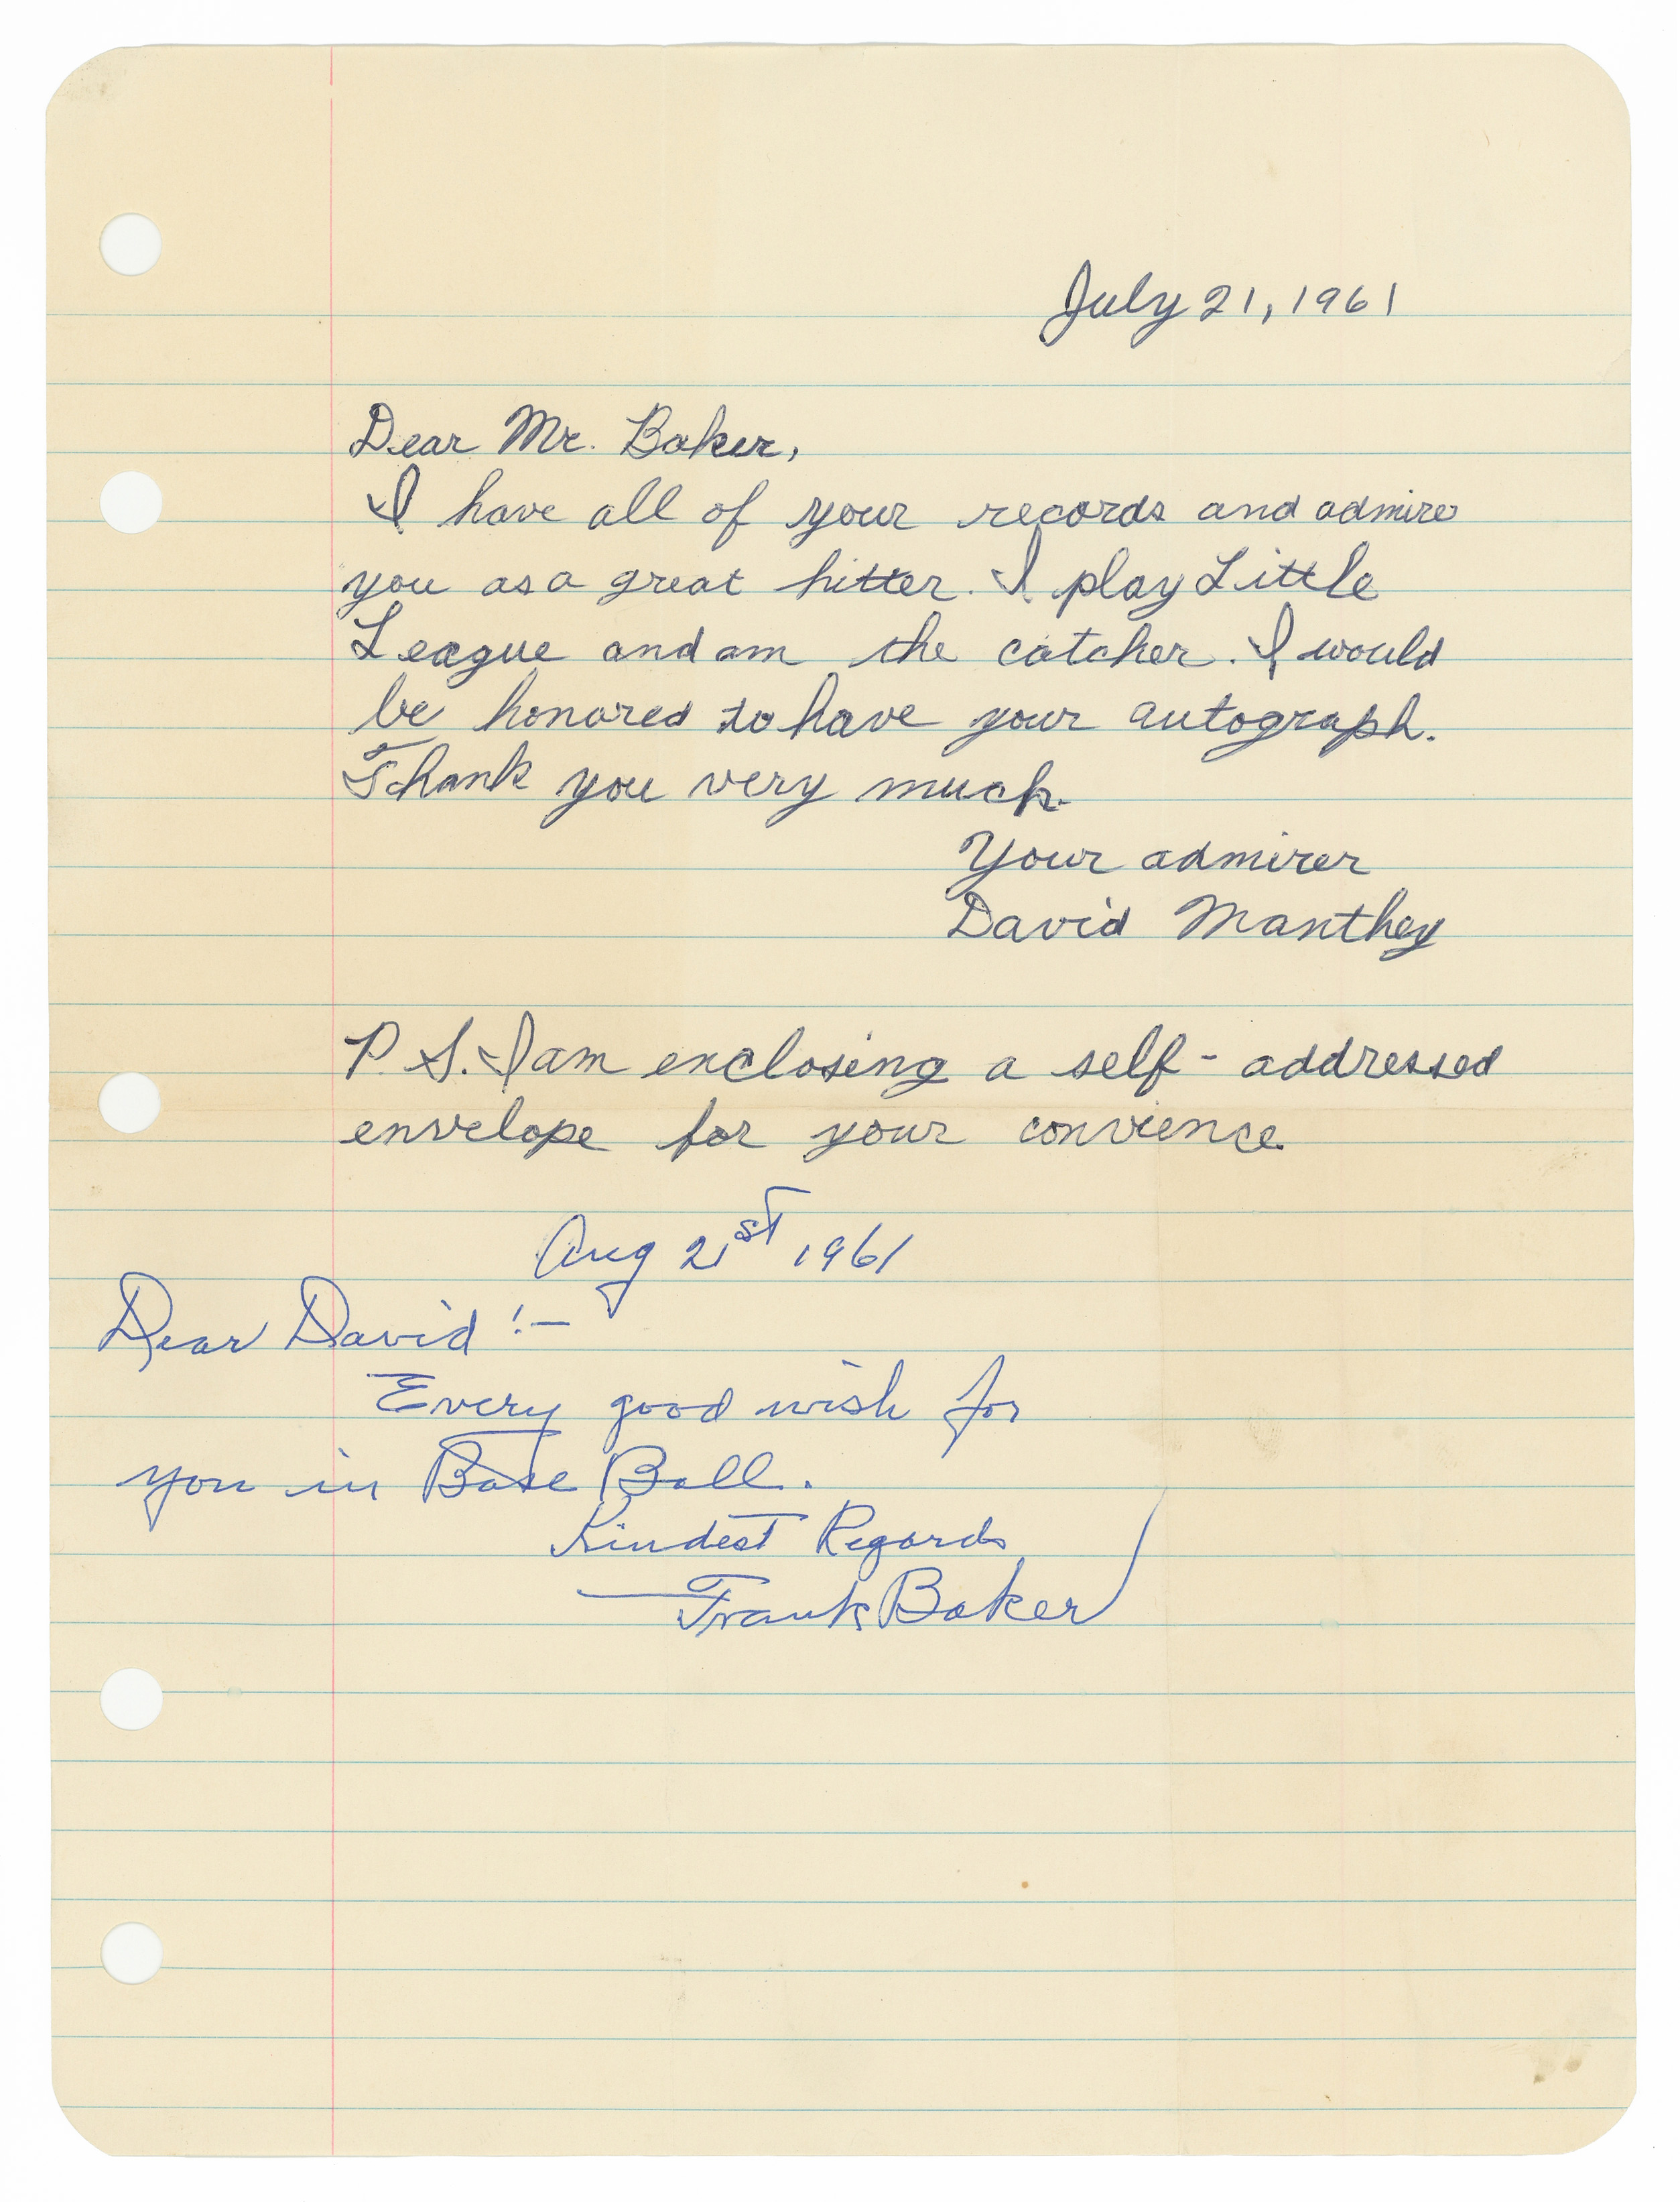 July 21, 1961
Dear Mr. Baker,
I have all of your records and admire
you as a great hitter. I play Little
League and am the catcher. I would
be honored to have your autograph.
Thank you very much.
Your admirer
David Manthey
P. S. I am enclosing a self-addressed
envelope for your convience
Aug 21st 1961
Dear David!—
Every good wish for
you in Base Ball.
Kindest Regards
Frank Baker